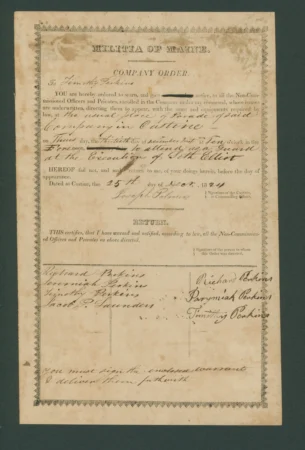 MILITIA OF MAINE.
COMPANY ORDER.
To Timothy Perkins
YOU are hereby ordered to warn, and give notice, to all the Non-Com-
missioned Officers and Privates, enrolled in the Company
are underwritten, directing them to appear, with the arms and equipments required by
law, at the usual place of Parade of said
Company in Castine
on at Ten
to attend as a Guard
at the Execution of Seth Elliot
HEREOF fail not, and make return to me, of your doings herein, before the day of
appearance.
Dated at Castine, this 25th day of 1824
Joseph
RETURN.
THIS certifies, that I have warned and notified, according to law, all the Non-Commission-
ed Officers and Privates as above directed.
Richard Perkins
Jeremiah Perkins
Timothy Perkins
Jacob P. Saunders
Richard Perkins
Jeremiah Perkins
Timothy Perkins
You must sign the enclosed warrant
& deliver them forthwith